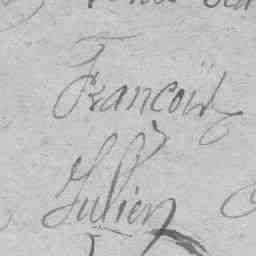 François
Julien